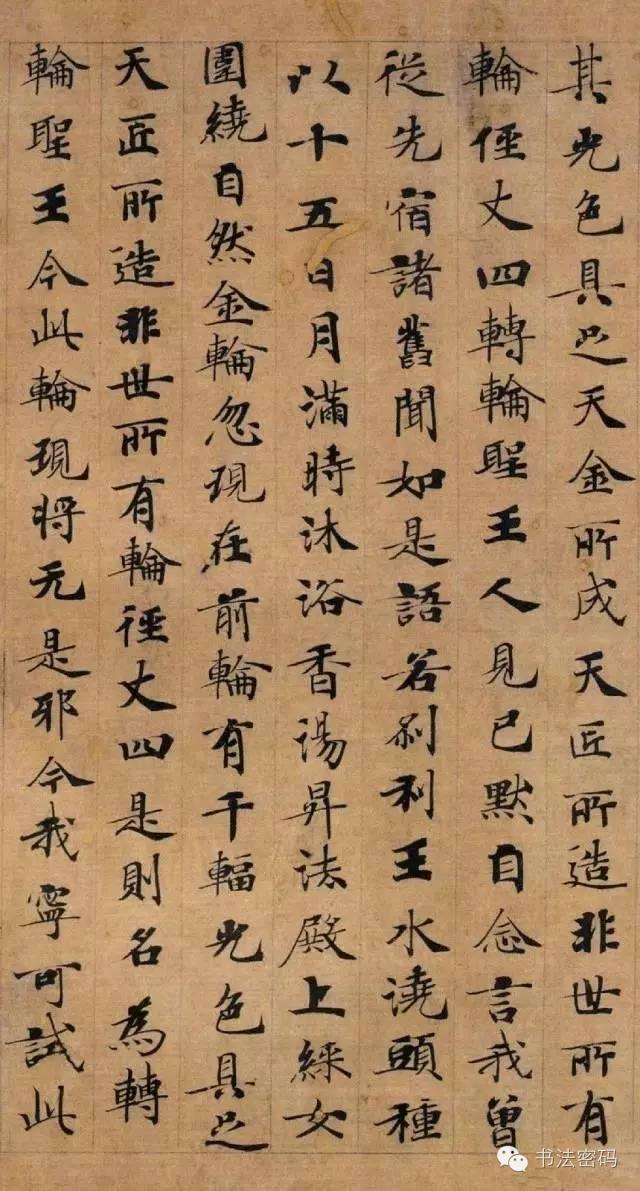 其光色具足天金所成天匠所造非世所有
輪俓丈四轉輪聖王人見已默自念言我曽
從先宿諸舊聞如是語若剎利王水澆頭種
以十五日月滿時沐浴香湯昇法殿上綵女
圍繞自然金輪忽現在前輪有千輻光色具足
天匠所造非世所有輪徑丈四是則名為轉
輪聖王今此輪現將无是邪今我寧可試此
书法密码